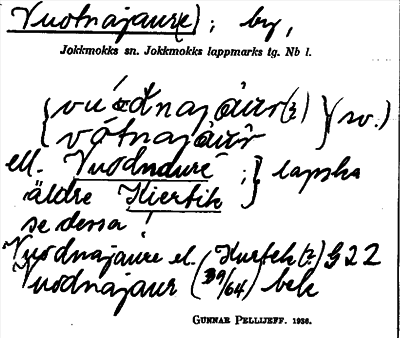 Vuotnajaur(e); by,
Jokkmokks sn. Jokkmokks lappmarks tg. Nb l.
vúođnajáur(?) (sv.)
vátnajáur
ell. Vuodnauré; lapska
äldre Kiertik
se dessa!
Vuodnajaure el. Kurtek (?) § 22
Vuodnajaur (39/64) bek
GUNNAR PELLIJEFF. 1936.